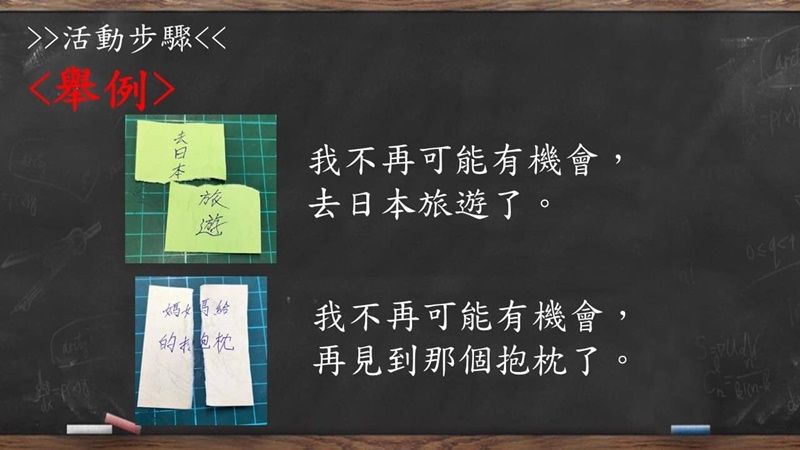 >>活動步驟<<
<舉例>
去日本
旅遊
我不再可能有機會，
去日本旅遊了。
媽媽給
的抱枕
我不再可能有機會，
再見到那個抱枕了。